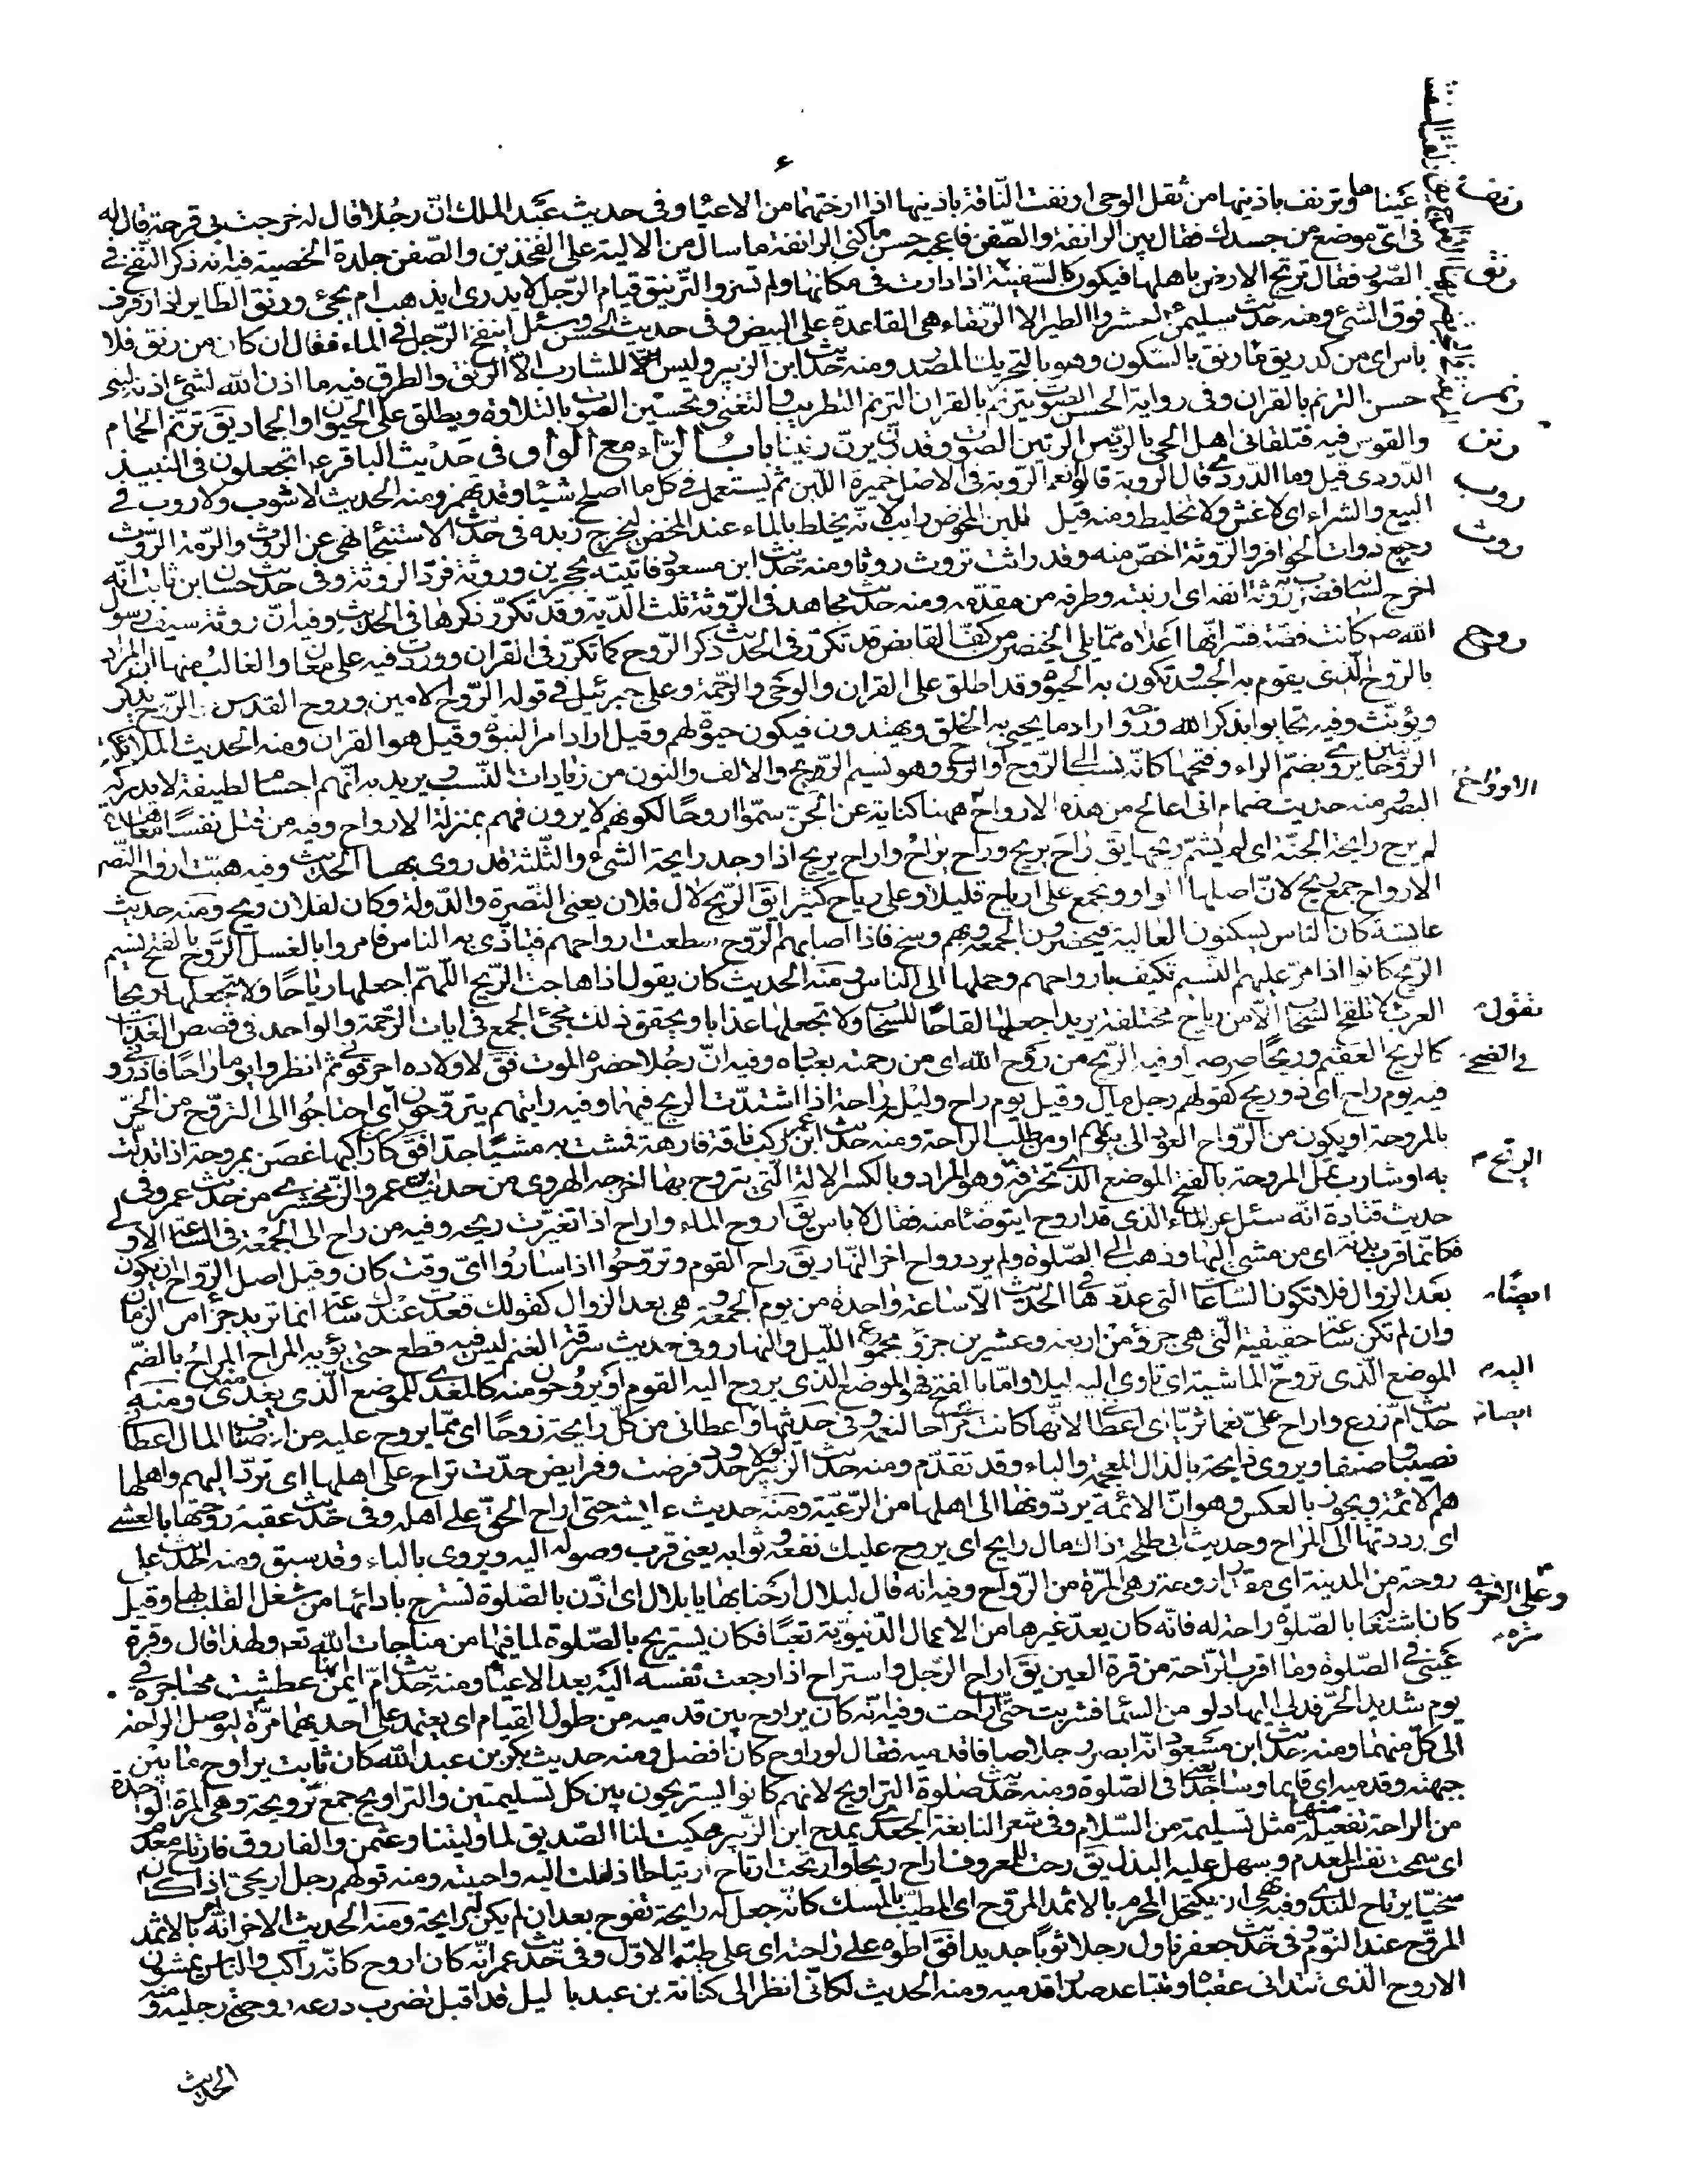 رنف عيناها وترنف باذنيها من ثقل الوحى ارنفت النّاقة باذنيها اذا ارختهما من الاعياء وفى حديث عبد الملك انّ رجُلا قال له خرجت بى قرحة قال له
فى اىّ موضع من جسدك فقال بين الرانفة والصّفن فاعجبه حسن ما كنى الرانفة ما سال من الالية على الفخذين والصّفن جلدة الخصية فيه انه ذكر النّفخ فى
رنق الصّور فقال ترتج الارض باهلها فيكون كالسّفينة اذا دارت فى مكانها ولم تسر والتّرنيق قيام الرّجل لا يدرى ايذهب ام يجئ ورنق الطاير اذا رفرف
فوق الشئ ومنه حديث سليمن احشروا الطير الا الرّنقاء هى القاعدة على البيض وفى حديث الحسن وسئل اينفخ الرّجل فى الماء فقال ان كان من رنق فلا
باس اى من كدر يق ماء رنق بالسّكون وهو بالتحريك المصدر ومنه حديث ابن الزبير وليس للشارب الّا الرنق والطرق فيه ما اذن الله لشئ اذنه لنبى
رنم حسن الترنم بالقران وفى رواية الحسن الصّوت يترنم بالقران الترنم التطريب والتغنى وتحسين الصّوت بالتلاوة ويطلق على الحيوان والجماد يق ترنّم الحمام
رنن والقوس فيه فتلقانى اهل الحى بالرنين الرنين الصّوت وقد رنّ يرنّ رنينا باب الرّاء مع الواو فى حَديث الباقر ع اتجعلون فى النبيذ
روب الدّردى قيل وما الدّردى قال الروبة قالوا نعم الرّوبة فى الاصل خميرة اللّبن ثم يستعمل فى كل ما اصلح شيئا وقد يهمز ومنه الحديث لا شوب ولا روب فى
البيع والشراء اى لا غش ولا تخليط ومنه قيل للبن الممخوض رايب لانّه يخلط بالماء عند المخض ليخرج زبده فى حديث الاستنجاء نهى عن الروث والرّمة الرّوث
روث رجيع ذوات الحوافر والرّوثة اخصّ منه وقد راثت تروث روثا ومنه حديث ابن مسعود فاتيته بحجرين وروثة فردّ الروثة وفى حديث حسان ابن ثابت انّه
اخرج لسانه فضرب به روثة انفه اى ارنبته وطرفه من مقدّمه ومنه حديث مجاهد فى الرّوثة ثلث الدّية وقد تكرّر ذكرها فى الحديث وفيه انّ روثة سيف رسول
الله ص كانت فضّة فسّر انّها اعلاه ممّا يلى الخنصر من كفّ القابض قد تكرّر فى الحديث ذكر الرّوح كما تكرّر فى القران ووردت فيه على معان والغالبُ منها ان المراد
روح بالرّوح الّذى يقوم به الجسد وتكون به الحيوة وقد اطلق على القران والوَحى والرّحمة وعلى جبرئيل فى قوله الرّوح الامين وروح القدس الرّوح يذكر
ويؤنّث وفيه تحابوا بذكر الله وروحه اراد ما يحيى به الخلق ويهتدون فيكون حيوة لهم وقيل اراد امر النبوّة وقيل هو القران ومنه الحديث الملائكة
الروحانيّون يروى بضمّ الراء وفتحها كانّه نسب الى الرّوح او الرَّوح وهو نسيم الرّيح والالف والنون من زيادات النّسب ويريد به انّهم اجسام لطيفة لا يدركها
الارواح البصر ومنه حديث ضمام انى اعالج من هذه الارواح ههنا كناية عن الجنّ سمّوا ارواحًا لكونهم لا يرون فهم بمنزلة الارواح وفيه من قتل نفسًا معاهدة
لم يرح رايحة الجنّة اى لم يشمّ ريحها يق راحَ يريح وراح يراحُ واراح يريح اذا وجد رايحة الشئ والثّلثة قد روى بها الحديث وفيه هبّت ارواح النّصر
الارواح جمع ريح لانّ اصلها الواو وتجمع على ارياح قليلا وعلى رياح كثيرا يق الرّيح لال فلان يعنى النّصرة والدّولة وكان لفلان ريح ومنه حديث
عايشة كان الناس يسكنون العالية فيحضرون الجمعة وبهم وسخ فاذا اصابهم الرّوح سطعت ارواحهم فيتاذّى به الناس فامروا بالغسل الرَّوح بالفتح نسيم
الرّيح كانوا اذا مرّ عليهم النّسيم تكيّف بارواحهم وحملها الى الناس ومنه الحديث كان يقول اذا هاجت الرّيح اللّهمّ اجعلها رياحًا ولا تجعلها ريحًا
تقول العرب لا تلقح السّحاب الّا من رياح مختلفة يريد اجعلها لقاحًا للسّحاب ولا تجعلها عذابا ويحقق ذلك مجئ الجمع فى ايات الرّحمة والواحد فى قصص العذاب
كالريح العقيم وريحًا صرصرا وفيه الرّيح من رَوح الله اى من رحمته بعباده وفيه انّ رجُلا حضره الموت فقَ لاولاده احرقونى ثم انظروا يوما راحًا فاذرونى
فيه يوم راح اى ذو ريح كقولهم رجل مال وقيل يوم راح وليلة راحة اذا اشتدّت الريح فيهما وفيه رايتهم يتروّحون اى احتاجُوا الى التّروّح من الحرّ
بالمروحة او يكون من الرّواح العود الى بيوتهم او من طلب الراحة ومنه حديث ابن عمر ركب ناقة فارهة فمشت به مشيًا جيّدا فقَ كانّ راكبها غصن بمروحة اذا تدلّت
الريح به او شارب ثمل المروحة بالفتح الموضع الّذى تخترقه وهو المراد وبالكسر الالة الّتى يتروح بها اخرجه الهروى من حديث ابن عمر والزّمخشرى من حديث عمر وفى
حديث قتادة انّه سئل عن الماء الذى قد اروح ايتوضّأ منه فقال لا باس يق اروح الماء واراح اذا تغيّرت ريحه وفيه من راح الى الجمعة فى السّاعة الاولى
فكانّما قرب بدنة اى من مشى اليها وذهب الى الصّلوة ولم يرد رواح اخر النّهار يقَ راح القوم وتروّحُوا اذا سارُوا اىّ وقت كان وقيل اصل الرّواح ان يكون
ايضًا بعد الزوال فلا تكون السّاعات التى عدّدها فى الحديث الّا ساعة واحدة من يوم الجمعة وهى بعد الزوال كقولك قعدت عندك ساعة انما تريد جزءا من الزمان
وان لم تكن ساعة حقيقية الّتى هى جزؤ من اربعة وعشرين جزؤ مجموع اللّيل والنهار وفى حديث سرقة الغنم ليس فيه قطع حتى يؤيه المراح المراحُ بالضّم
اليه الموضع الّذى تروح الماشية اى تاوى اليه ليلا وامّا بالفتح فهو الموضع الذى يروح اليه القوم او يروحون منه كالمغدى للموضع الّذى يغدى منه ومنه
حديث امّ زرع واراح علىّ نعما ثريّا اى اعطانى لانّها كانت مراحا لنعمه وفى حديثها واعطانى من كلّ رايحة زوجًا اى ممّا يروح عليه من اصناف المال اعطانى
نصيبا وصنفا ويروى ذابحة بالذال المعجمة والباء وقد تقدّم ومنه حديث الزبير لولا حدود فرضت وفرايض حدّت تراح على اهلها اى تردّ اليهم واهلها
هم الائمّة ويجوز بالعكس وهو انّ الائمّة يردّونها الى اهلها من الرّعيّة ومنه حديث عايشة حتى اراح الحقّ على اهله وفى حديث عقبة روحتها بالعشى
اى رددتها الى المراح وحديث ابى طلحة ذاك مال رايح اى يروح عليك نفعه وثوابه يعنى قرب وصوله اليه ويروى بالباء وقد سبق ومنه الحديث على
روحة من المدينة اى مقدار روحة وهى المرّة من الرّواح وفيه انه قال لبلال ارحنا بها يا بلال اى اذّن بالصّلوة نسترح بادائها من شغل القلب بها وقيل
كان اشتغاله بالصّلوة راحة له فانّه كان يعدّ غيرها من الاعمال الدّنيويّة تعبًا فكان يستريح بالصّلوة لما فيها من مناجات الله تعم ولهذا قال وقرة
عينى فى الصّلوة وما اقرب الرّاحة من قرة العين يقَ اراح الرّجل واستراح اذا رجعت نفسه اليه بعد الاعياء ومنه حديث امّ ايمن انّها عطشت مهاجرة فى
يوم شديد الحرّ فدلى اليها دلو من السّماء فشربت حتّى اراحت وفيه انّه كان يراوح بين قدميه من طول القيام اى يعتمد على احديهما مرّة ليوصل الراحة
الى كلّ منهما ومنه حديث ابن مسعود انّه ابصر رجلا صافا قدميه فقال لو راوح كان افضل ومنه حديث بكر بن عبد الله كان ثابت يراوح ما بين
جبهته وقدميه اى قايما وساجدا يعنى فى الصّلوة ومنه حديث صلوة التراويح لانهم كانوا يستريحون بين كل تسليمتين والتراويح جمع ترويحة وهى المرة الواحدة
من الراحة تفعيلة منها مثل تسليمة من السّلام وفى شعر النابغة الجعدى يمدح ابن الزّبير حكيت لنا الصّديق لما وليتنا وعثمن والفاروق فارتاح معدم
اى سمحت نفس المعدم وسهل عليه البذل يق رحت للمعروف اراح ريحا وارتحت ارتاح ارتياحا اذا ملت اليه واحببته ومنه قولهم رجل اريحىّ اذا كان
سخيّا يرتاح للندى وفيه نهى ان يكتحل المحرم بالاثمد المروّح اى المطيّب بالمسك كانّه جعل له رايحة تفوح بعد ان لم يكن له رايحة ومنه الحديث الاخر انّه امر بالاثمد
المروّح عند النّوم وفى حديث جعفر ناول رجلا ثوبًا جديدا فقَ اطوه على راحته اى على طيّه الاوّل وفى حديث عمر انّه كان اروح كانّه راكب والناس يمشون
الاروح الّذى تتدانى عقباه ويتباعد صدرا قدميه ومنه الحديث لكانّى انظر الى كنانة بن عبد ياليل قد اقبل تضرب درعه روحتى رجليه ومنه
الحديث